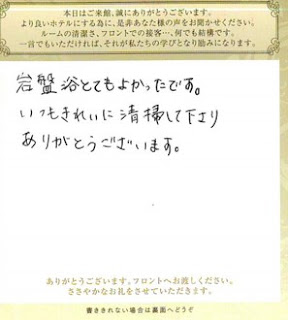 本日はご来館、誠にありがとうございます。
より良いホテルにする為に、是非あなた様の声をお聞かせください。
ルームの清潔さ、フロントでの接客…、何でも結構です。
一言でもいただければ、それが私たちの学びとなり励みになります。
岩盤浴とてもよかったです。
いつもきれいに清掃して下さり
ありがとうございます。
ありがとうございます。フロントへお渡しください。
ささやかなお礼をさせていただきます。
書ききれない場合は裏面へどうぞ